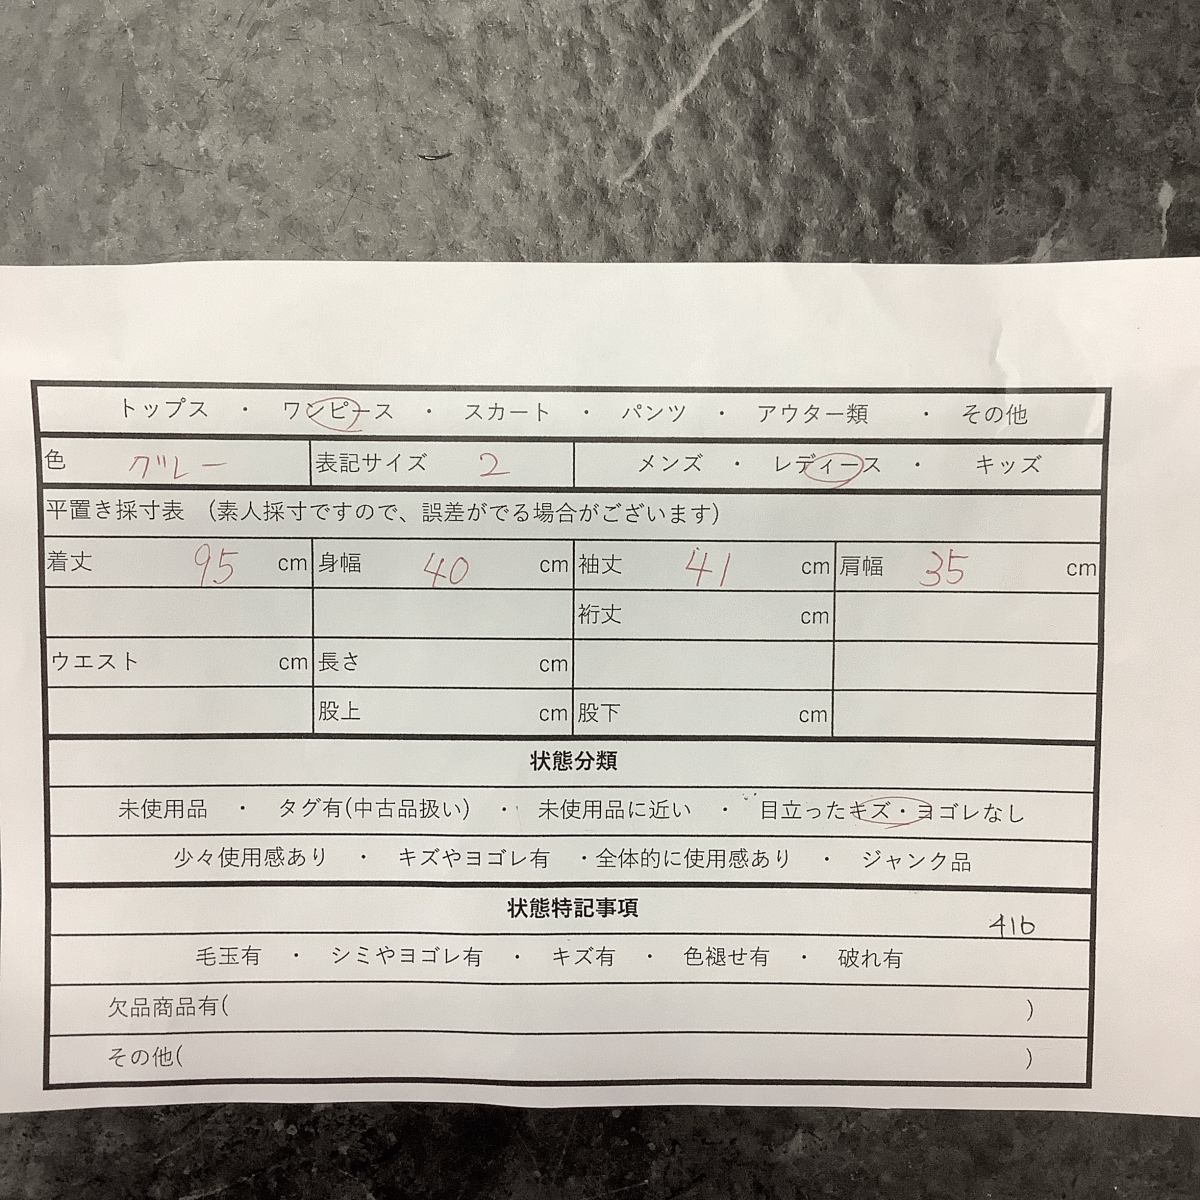 トップス ・ ワンピース ・ スカート ・ パンツ ・ アウター類 ・ その他
色 グレー 表記サイズ 2 メンズ ・ レディース ・ キッズ
平置き採寸表 (素人採寸ですので、誤差がでる場合がございます)
着丈 95 cm 身幅 40 cm 袖丈 41 cm 肩幅 35 cm
裄丈 cm
ウエスト cm 長さ cm
股上 cm 股下 cm
状態分類
未使用品 ・ タグ有(中古品扱い) ・ 未使用品に近い ・ 目立ったキズ・ヨゴレなし
少々使用感あり ・ キズやヨゴレ有 ・全体的に使用感あり ・ ジャンク品
状態特記事項
416
毛玉有 ・ シミやヨゴレ有 ・ キズ有 ・ 色褪せ有 ・ 破れ有
欠品商品有( )
その他( )